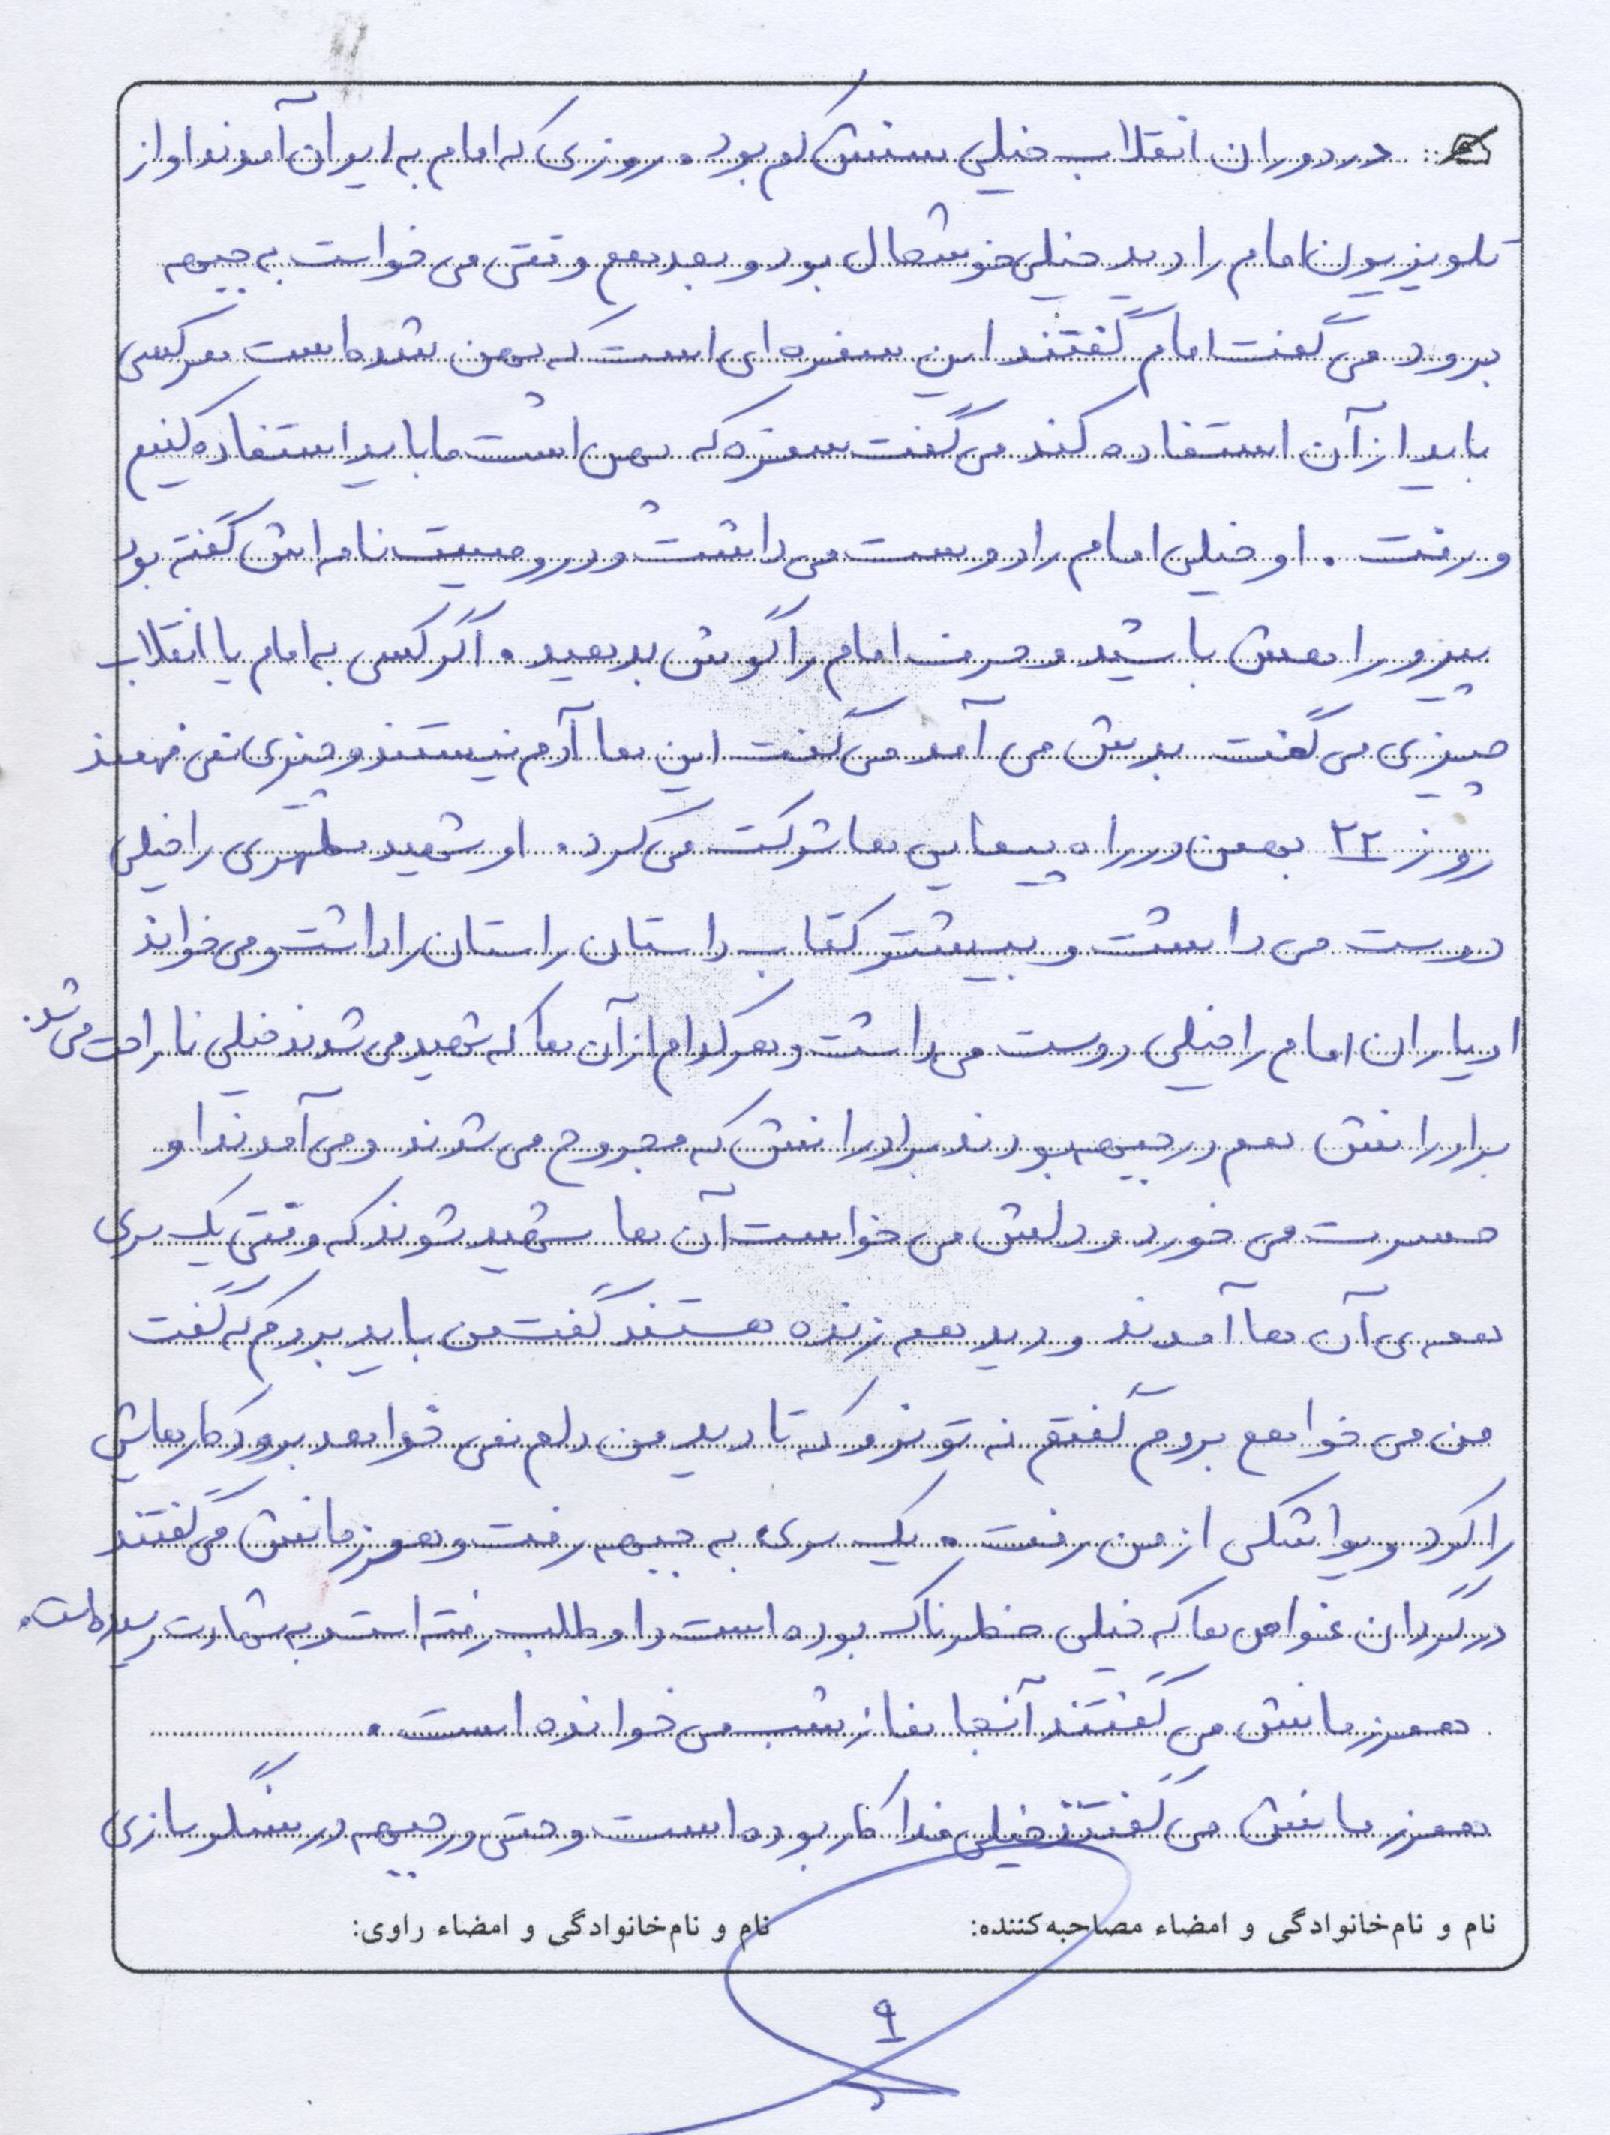 در دوران انقلاب خیلی سنش کم بود. روزی که امام به ایران آمدند او از
تلویزیون امام را دید خیلی خوشحال بود و بعد هم وقتی می خواست به جبهه
برود می گفت امام گفتند این سفره ای است که پهن شده است هر کسی
باید از آن استفاده کند می گفت سفره که پهن است ما باید استفاده کنیم
و رفت. او خیلی امام را دوست می داشت و در وصیت نامه اش گفته بود
پیرو راهش باشید و حرف امام را گوش بدهید. اگر کسی به امام یا انقلاب
چیزی می گفت بدش می آمد می گفت این ها آدم نیستند و چیزی نمی فهمند
روز ۲۲ بهمن در راه پیمایی ها شرکت می کرد. او شهید مطهری را خیلی
دوست می داشت و بیشتر کتاب داستان راستان را داشت و می خواند
او یاران امام را خیلی دوست می داشت و هر کدام از آن ها که شهید می شدند خیلی ناراحت می شد.
برادرانش هم در جبهه بودند برادرانش که مجروح می شدند و می آمدند او
حسرت می خورد و دلش می خواست آن ها شهید شوند که وقتی یک سری
همه ی آن ها آمدند و دید همه زنده هستند گفت من باید بروم که گفت
من می خواهم بروم گفتم نه تو نرو که تا دید من دلم نمی خواهد برود کارهایش
را کرد و یواشکی از من رفت. یک سری به جبهه رفت و همرزمانش می گفتند
در گردان غواص ها که خیلی خطرناک بوده است داوطلب رفته است و به شهادت رسیده است.
همرزمانش می گفتند آنجا نماز شب می خوانده است.
همرزمانش می گفتند خیلی فداکار بوده است و حتی در جبهه در سنگر سازی
نام و نام‌خانوادگی و امضاء مصاحبه‌کننده: نام و نام‌خانوادگی و امضاء راوی:
۹